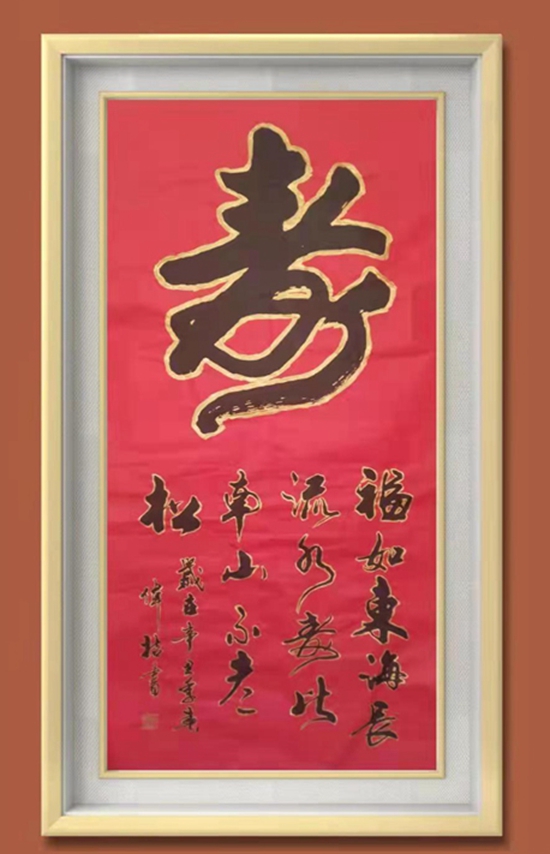 寿
福如東海長
流水寿比
南山不老
松
歲在辛丑季春
偉 書